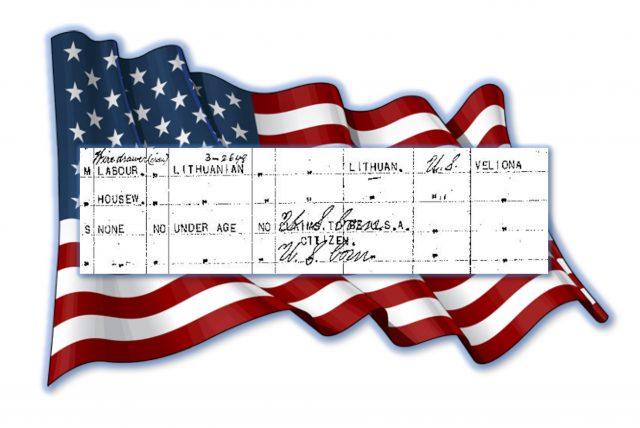 Wire drawer (iron) 3-2648
M LABOUR. " LITHUANIAN " " LITHUAN. U.S. VELIONA
" HOUSEW. " " " " " " "
S NONE NO UNDER AGE NO CLAIMS TO BE U.S.A. " "
U S born
CITIZEN.
" " " " " U S born " "